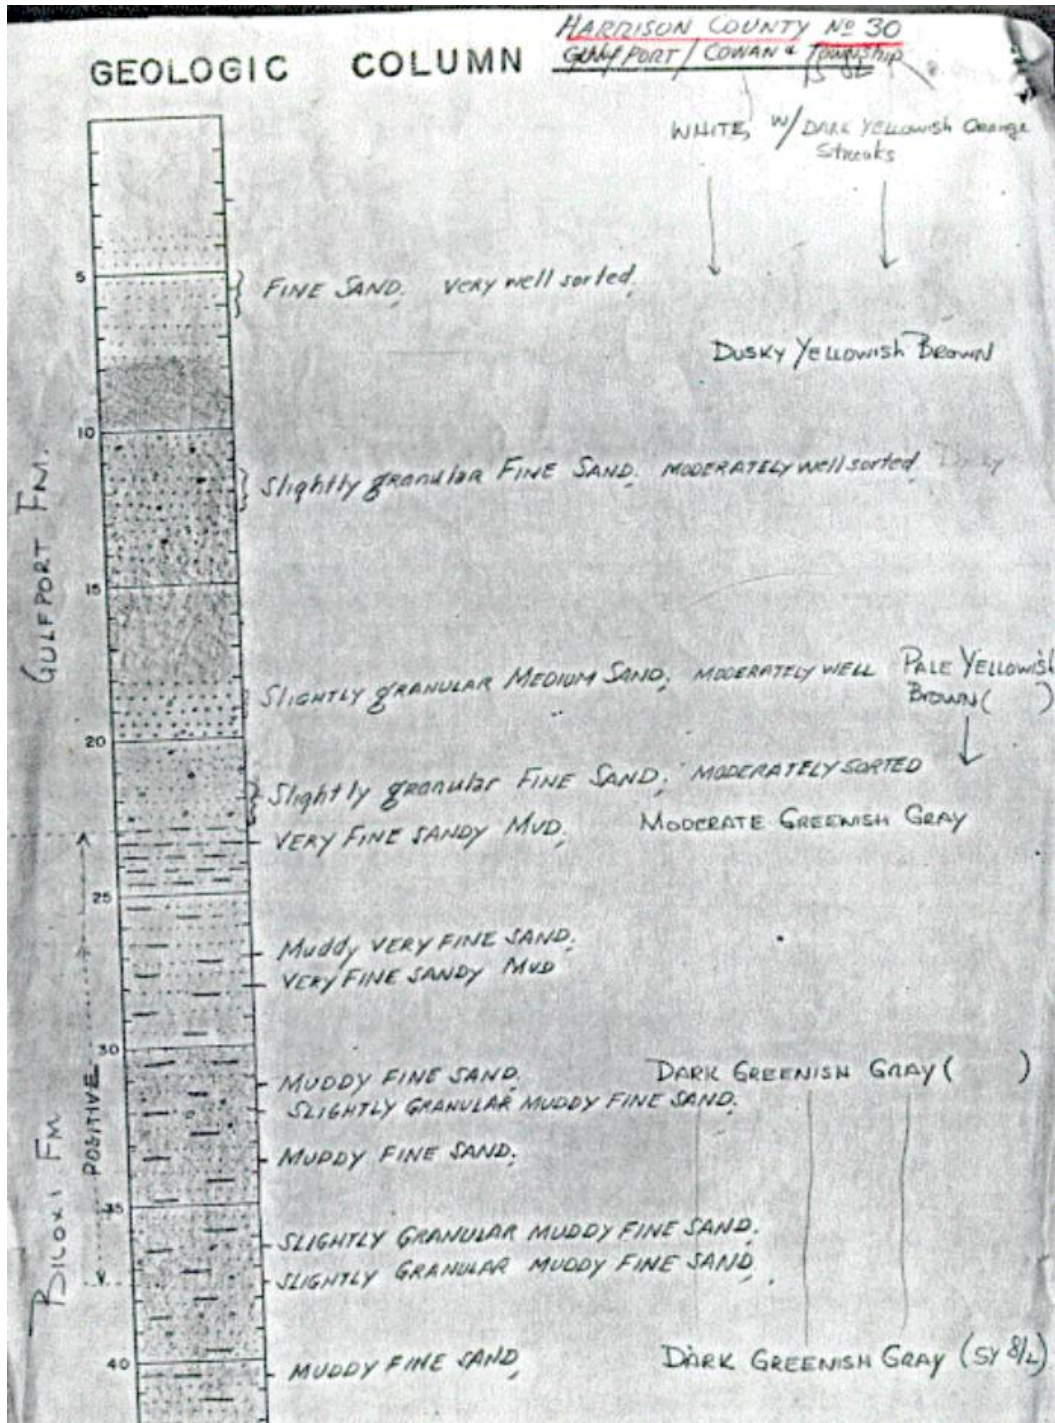 HARRISON COUNTY Nº 30
GULFPORT / COWAN & Township
GEOLOGIC COLUMN
WHITE, W/ DARK YELLOWISH Orange
Streaks
5
FINE SAND, very well sorted,
DUSKY YELLOWISH BROWN
10
Slightly granular FINE SAND, MODERATELY well sorted,
GULFPORT FM.
15
SLIGHTLY granular MEDIUM SAND, MODERATELY WELL PALE YELLOWISH
BROWN( )
20
Slightly granular FINE SAND, MODERATELY SORTED
VERY FINE SANDY MUD, MODERATE GREENISH GRAY
25
Muddy VERY FINE SAND,
VERY FINE SANDY MUD
30
MUDDY FINE SAND, DARK GREENISH GRAY ( )
SLIGHTLY GRANULAR MUDDY FINE SAND,
POSITIVE
BILOXI FM
MUDDY FINE SAND,
35
SLIGHTLY GRANULAR MUDDY FINE SAND,
SLIGHTLY GRANULAR MUDDY FINE SAND,
40
MUDDY FINE SAND, DARK GREENISH GRAY (5Y 8/2)